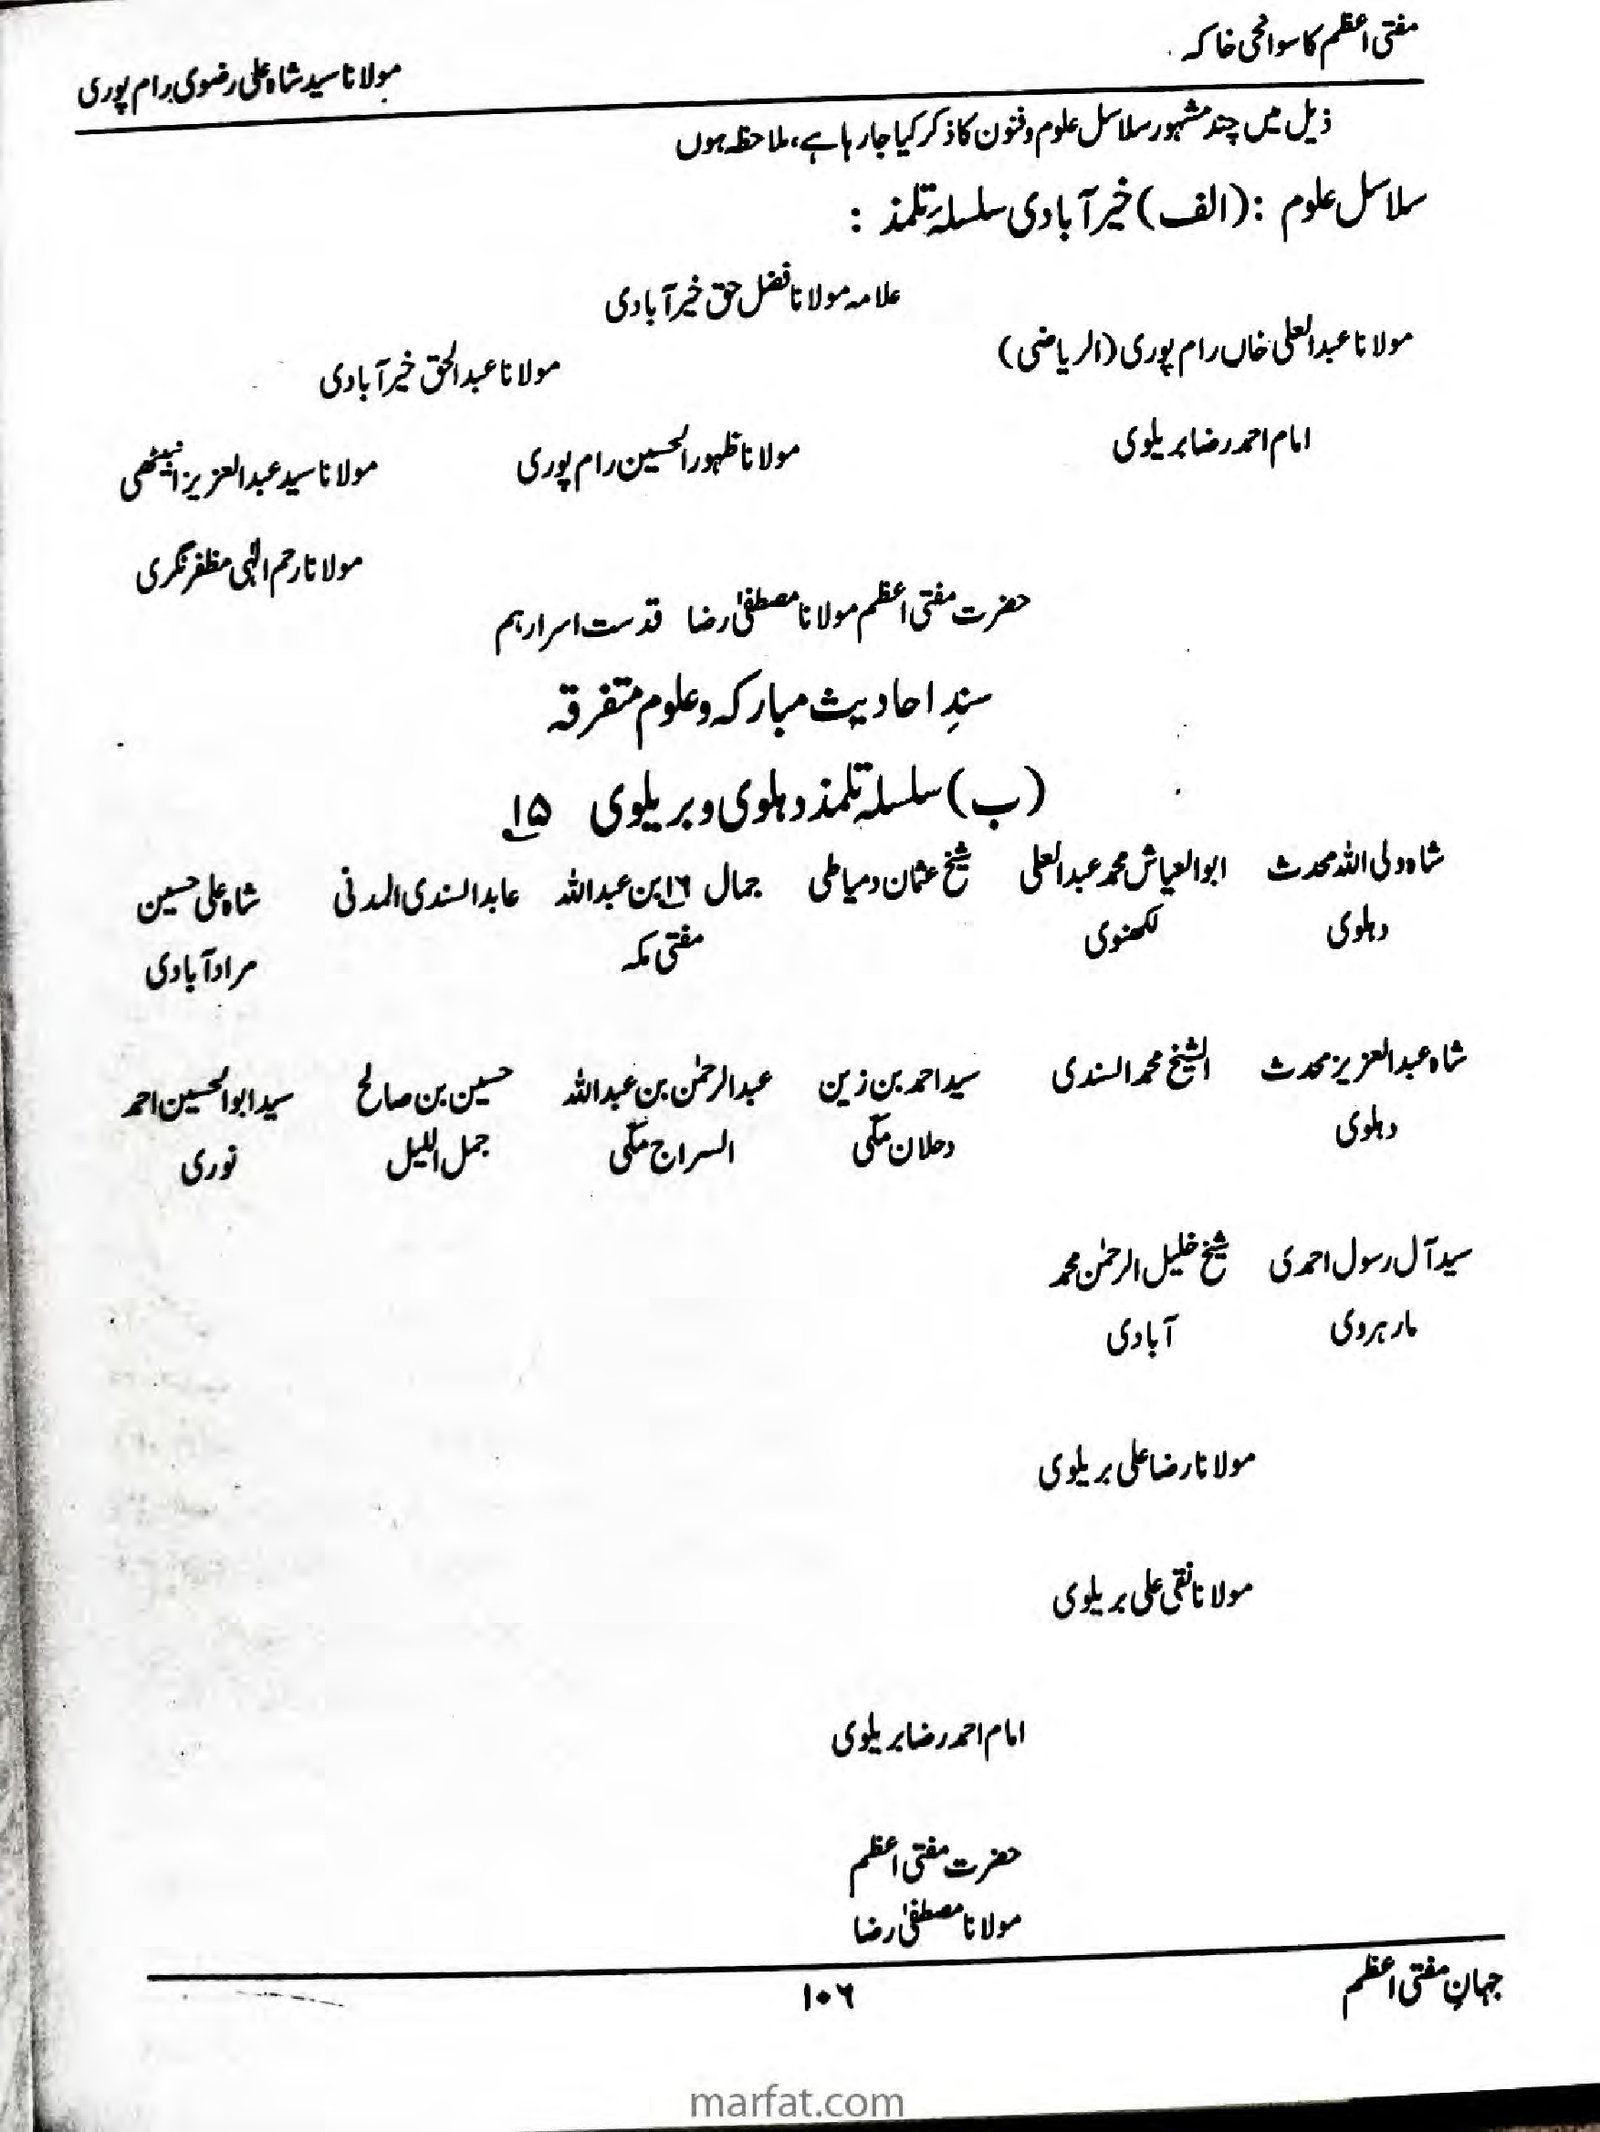 مفتی اعظم کا سوانحی خاکہ
مولانا سید شاہ علی رضوی رام پوری
ذیل میں چند مشہور سلاسل علوم و فنون کا ذکر کیا جا رہا ہے، ملاحظہ ہوں
سلاسل علوم : (الف) خیرآبادی سلسلۂ تلمذ :
علامہ مولانا فضل حق خیرآبادی
مولانا عبدالعلی خاں رام پوری (الریاضی)
مولانا عبدالحق خیرآبادی
امام احمد رضا بریلوی
مولانا ظہورالحسین رام پوری
مولانا سید عبدالعزیز انبیٹھی
مولانا رحم الٰہی مظفر نگری
حضرت مفتی اعظم مولانا مصطفیٰ رضا قدست اسرارہم
سندِ احادیث مبارکہ و علوم متفرقہ
(ب) سلسلہ تلمذ دہلوی و بریلوی ۱۵
شاہ ولی اللہ محدث ابوالعیاش محمد عبدالعلی شیخ عثمان دمیاطی جمال ۱۶ بن عبداللہ عابد السندی المدنی شاہ علی حسین
دہلوی لکھنوی مفتی مکہ مرادآبادی
شاہ عبدالعزیز محدث الشیخ محمد السندی سید احمد بن زین عبدالرحمٰن بن عبداللہ حسین بن صالح سید ابوالحسین احمد
دہلوی دحلان مکّی السراج مکّی جمل اللیل نوری
سید آل رسول احمدی شیخ خلیل الرحمٰن محمد
مارہروی آبادی
مولانا رضا علی بریلوی
مولانا نقی علی بریلوی
امام احمد رضا بریلوی
حضرت مفتی اعظم
مولانا مصطفیٰ رضا
جہانِ مفتی اعظم
۱۰۶
marfat.com